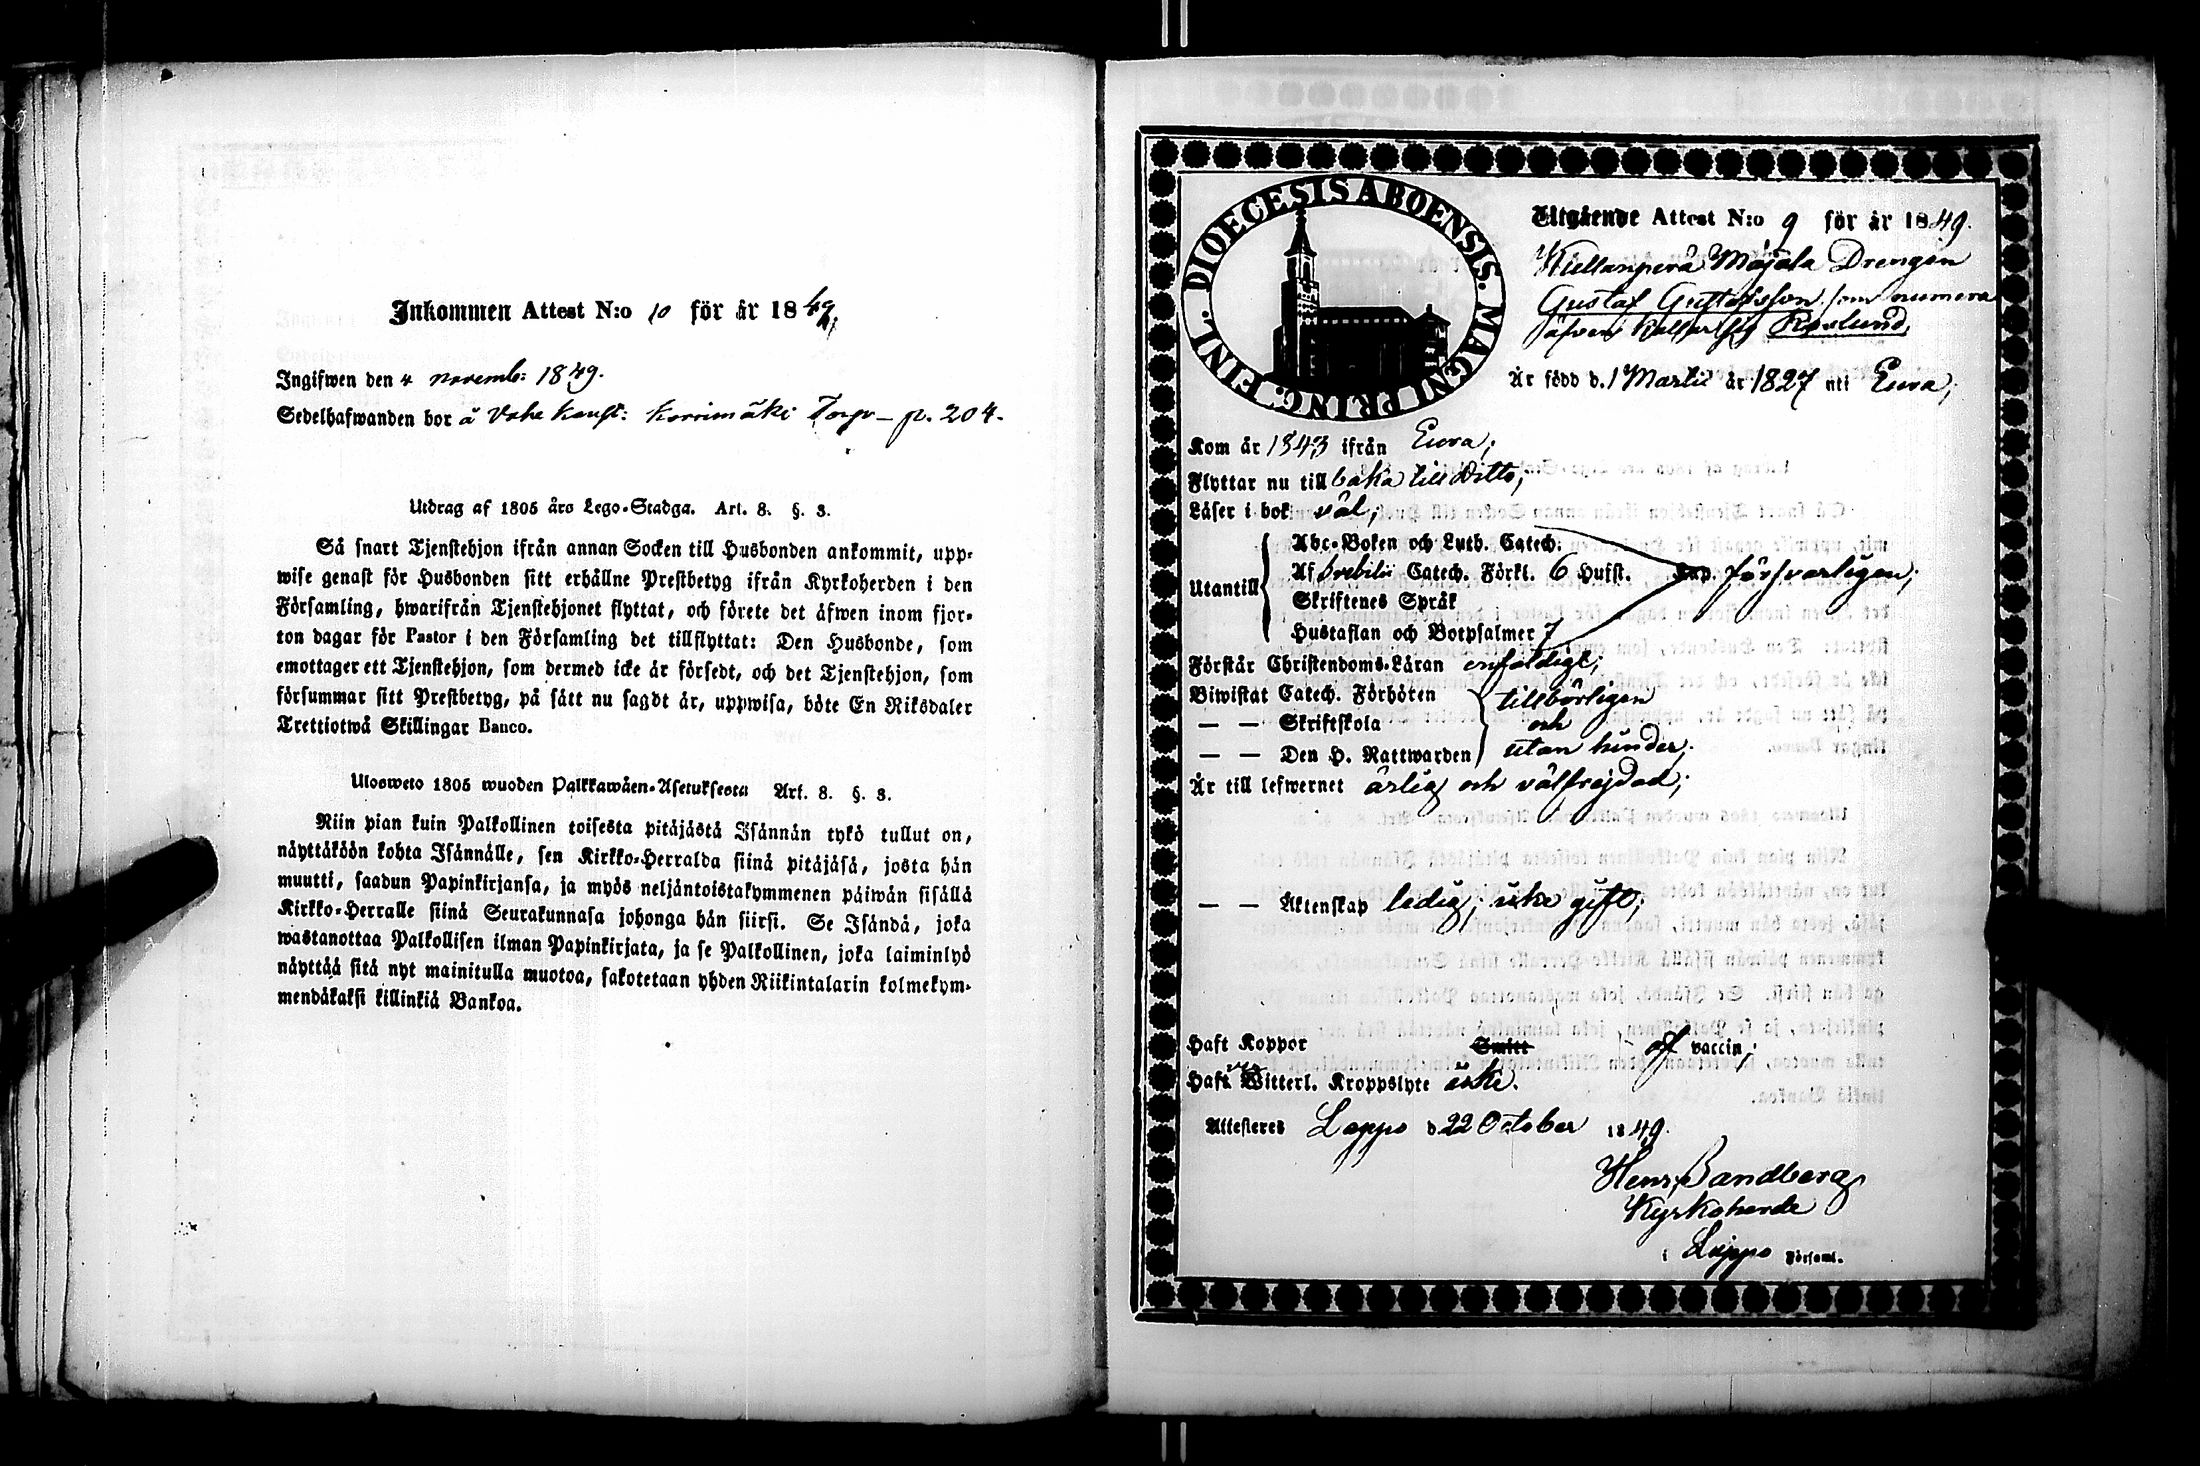 Inkommen Attest N:o 10 för år 1849.
Ingifwen den 4 novemb: 1849.
Sedelhafwanden bor å Vahe Korrimäki Torp – p. 204.
Utdrag af 1805 års Lego-Stadga. Art. 8. §. 3.
Så snart Tjenstehjon ifrån annan Socken till Husbonden ankommit, upp-
wise genast för Husbonden sitt erhållne Prestbetyg ifrån Kyrkoherden i den
Församling, hwarifrån Tjenstehjonet flyttat, och förete det äfwen inom fjor-
ton dagar för Pastor i den Församling det tillflyttat: Den Husbonde, som
emottager ett Tjenstehjon, som dermed icke är försedt, och det Tjenstehjon, som
försummar sitt Prestbetyg, på sätt nu sagdt är, uppwisa, böte En Riksdaler
Trettiotwå Skillingar Banco.
Ulosweto 1805 wuoden Palkkawäen-Asetuksesta Art. 8. §. 3.
Niin pian kuin Palkollinen toisesta pitäjästä Isännän tykö tullut on,
näyttäköön kohta Isännälle, sen Kirkko-Herralda siinä pitäjäsä, josta hän
muutti, saadun Papinkirjansa, ja myös neljäntoistakymmenen päiwän sisällä
Kirkko-Herralle siinä Seurakunnasa johonga hän siirsi. Se Isändä, joka
wastanottaa Palkollisen ilman Papinkirjata, ja se Palkollinen, joka laiminlyö
näyttää sitä nyt mainitulla muotoa, sakotetaan yhden Riikintalarin kolmekym-
mendäkaksi killinkiä Bankoa.
DIOECESIS ABOENSIS. MAGNI PRINC. FINL.
Utgående Attest N:o 9 för år 1849.
Kiellanperä Majala Drengen
Gustaf Gustafsson, som numera
äfven kallar sig Roslund,
Är född d. 1 Martii år 1827 uti Eura,
Kom år 1843 ifrån Eura;
Flyttar nu till baka till Ditto,
Läser i bok väl,
Utantill
Abc-Boken och Luth. Catech.
Af Svebilii Catech. Förkl. 6 Hufst. försvarligen;
Skriftenes Språk
Hustaflan och Botpsalmer 7
Förstår Christendoms-Läran enfaldigt;
Biwistat Catech. Förhören tillbörligen
— — Skriftskola och
— — Den H. Nattwarden utan hinder;
Är till lefwernet ärlig och välfrejdad;
— — Äktenskap ledig; icke gift;
Haft Koppor Smitt af vaccin;
Haft Witterl. Kroppslyte icke.
Attesteres Lappo d 22 October 1849.
Henr. Sandberg
Kyrkoherde
i Lappo Församl.